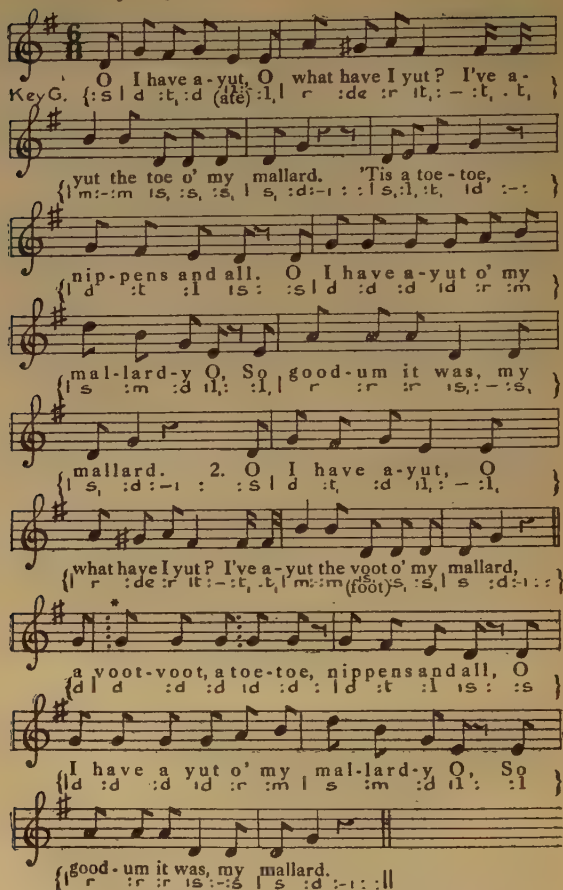 6
8
O I have a-yut, O what have I yut? I've a-
Key G. {:s | d :t, :d (ate) :l, | r :de :r | t, :– :t, . t, }
yut the toe o' my mallard. 'Tis a toe-toe,
{| m :– :m | s, :s, :s, | s, :d :– | : : | s, :l, :t, | d :– : }
nip-pens and all. O I have a-yut o' my
{| d :t :l | s : :s | d :d :d | d :r :m }
mal-lard-y O, So good-um it was, my
{| s :m :d | l, : :l, | r :r :r | s, :– :s, }
mallard. 2. O I have a-yut, O
{| s, :d :– | : :s | d :t, :d | l, :– :l, }
what have I yut? I've a-yut the voot o' my mallard,
{| r :de :r | t :– :t, . t, | m :– :m (foot) | s, :s, :s, | s :d :– | : : }
*
a voot-voot, a toe-toe, nippens and all, O
{d | d :d | d :d : | d :t :l | s : :s
I have a yut o' my mal-lard-y O, So
{| d :d :d | d :r :m | s :m :d | l : :l }
good-um it was, my mallard.
{| r :r :r | s :– :s | s :d :– | : : ||